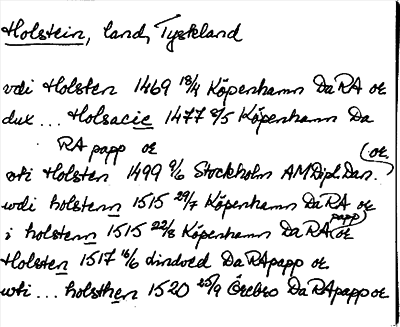 Holstein, land, Tyskland
vdi Holsten 1469 18/4 Köpenhamn DaRA or
dux ... Holsacie 1477 8/5 Köpenhamn Da
RA papp or
vti Holsten 1499 9/6 Stockholm AMDipl.Dan. (or.
wdi holstenn 1515 29/7 Köpenhamn DaRA or
i holstenn 1515 22/8 Köpenhamn DaRA papp or
Holsten 1517 16/6 DaRApapp or.
wti ... holsthen 1520 25/9 Örebro DaRApapp or.